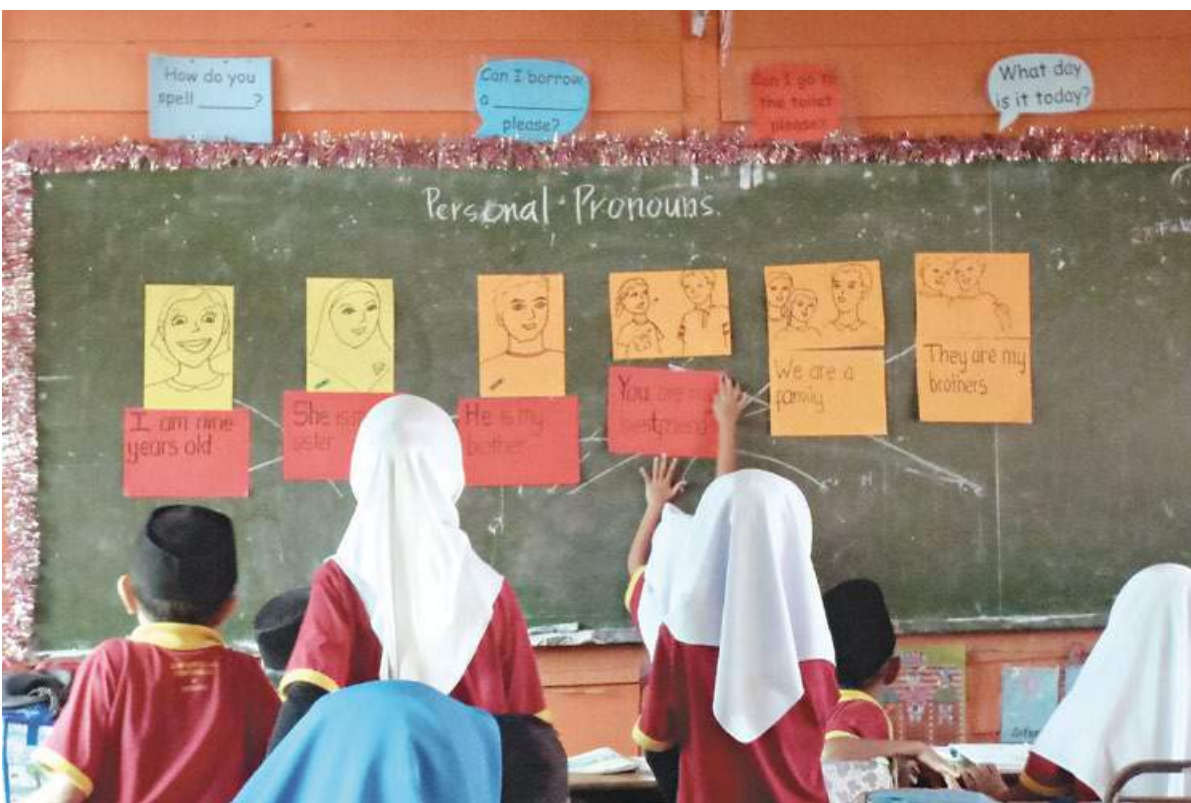 How do you
spell ______?
Can I borrow
a __________
please?
Can I go to
the toilet
please?
What day
is it today?
Personal Pronouns.
I am nine
years old
She is
sister
He is my
brother
You are my
bestfriend
We are a
family
They are my
brothers